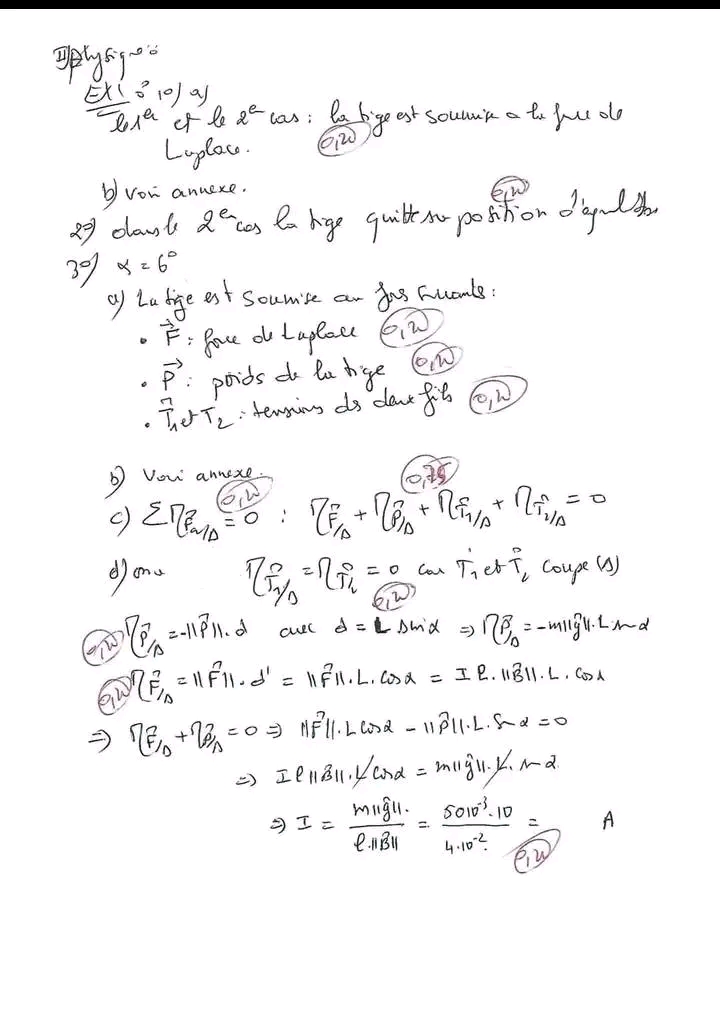 II) physique :
EX1 : 1°) a)
le 1er et le 2em cas : la tige est soumise a la force de
Laplace. 0,25
b) voir annexe.
2°) dans le 2em cas la tige quitte sa position d'équilibre 0,25
3°) α = 6°
a) La tige est soumise au forces suivantes :
• F⃗ : force de Laplace 0,25
• P⃗ : poids de la tige 0,25
• T⃗1 et T2 : tensions des deux fils 0,25
b) Voir annexe. 0,75
c) Σ M F⃗ext/Δ = 0 : M F⃗/Δ + M P⃗/Δ + M T⃗1/Δ + M T⃗2/Δ = 0 0,25
d) on a M T⃗1/Δ = M T⃗2 = 0 car T⃗1 et T⃗2 coupe (Δ) 0,25
0,25 M P⃗/Δ = -||P⃗||. d avec d = L sin α => M P⃗/Δ = -m||g⃗||. L. sin α
0,25 M F⃗/Δ = ||F⃗||. d' = ||F⃗||. L. cos α = I ℓ. ||B⃗||. L. cos α
=> M F⃗/Δ + M P⃗/Δ = 0 => ||F⃗||. L cos α - ||P⃗||. L. sin α = 0
=> I ℓ ||B⃗||. L cos α = m||g⃗||. L. sin α
=> I = m||g⃗||. / ℓ.||B⃗|| = 50 10⁻³. 10 / 4. 10⁻². = A 0,25